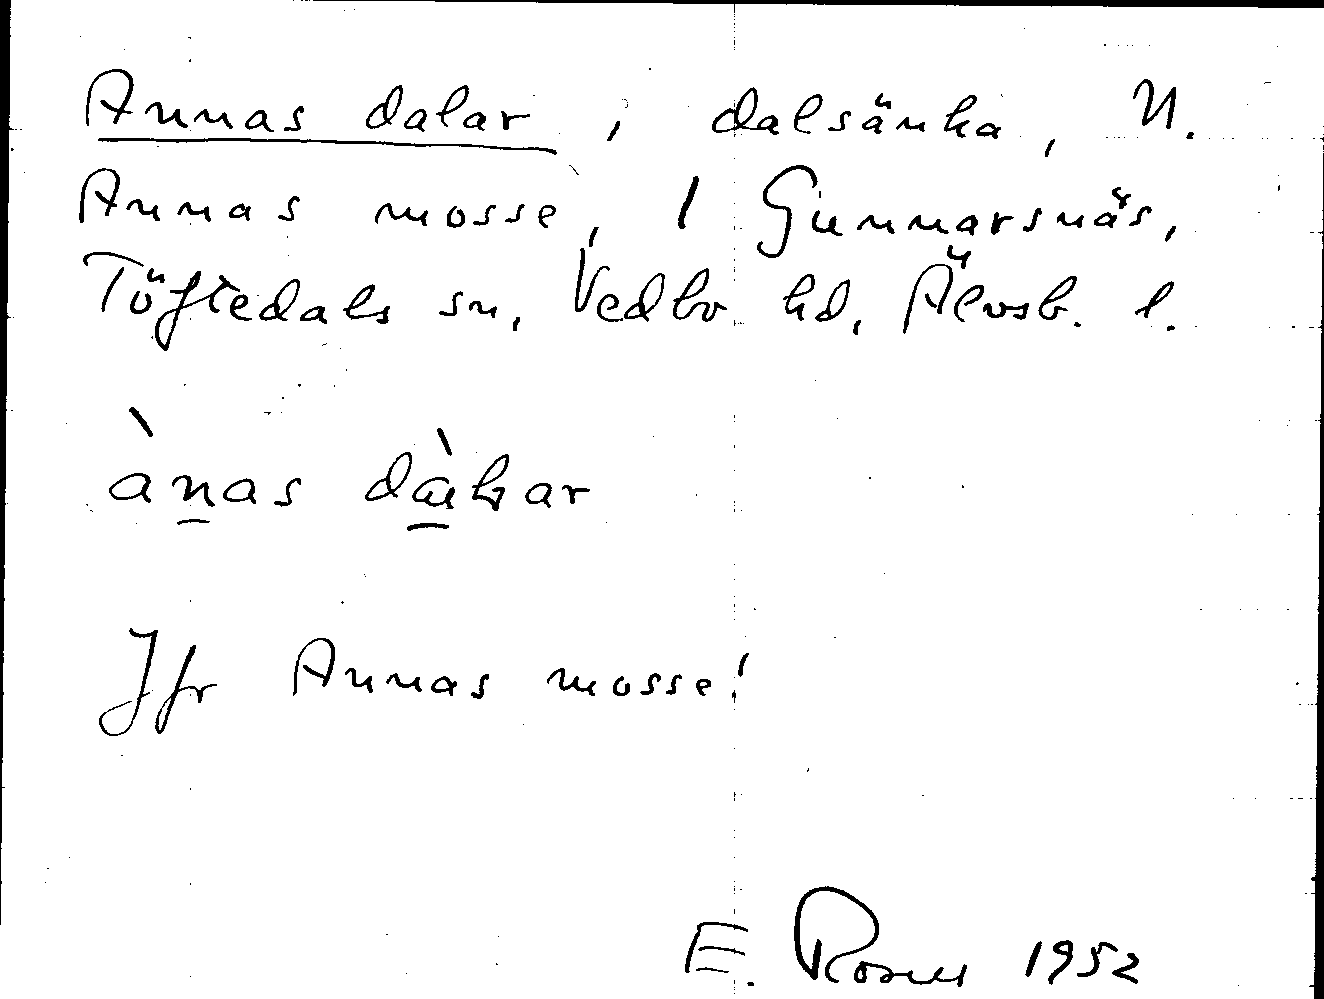 Annas dalar, dalsänka, N.
Annas mosse, 1 Gunnarsnäs,
Töftedals sn, Vedbo hd, Älvsb. l.
ànas dàłar
Jfr Annas mosse!
E. Rosell 1952